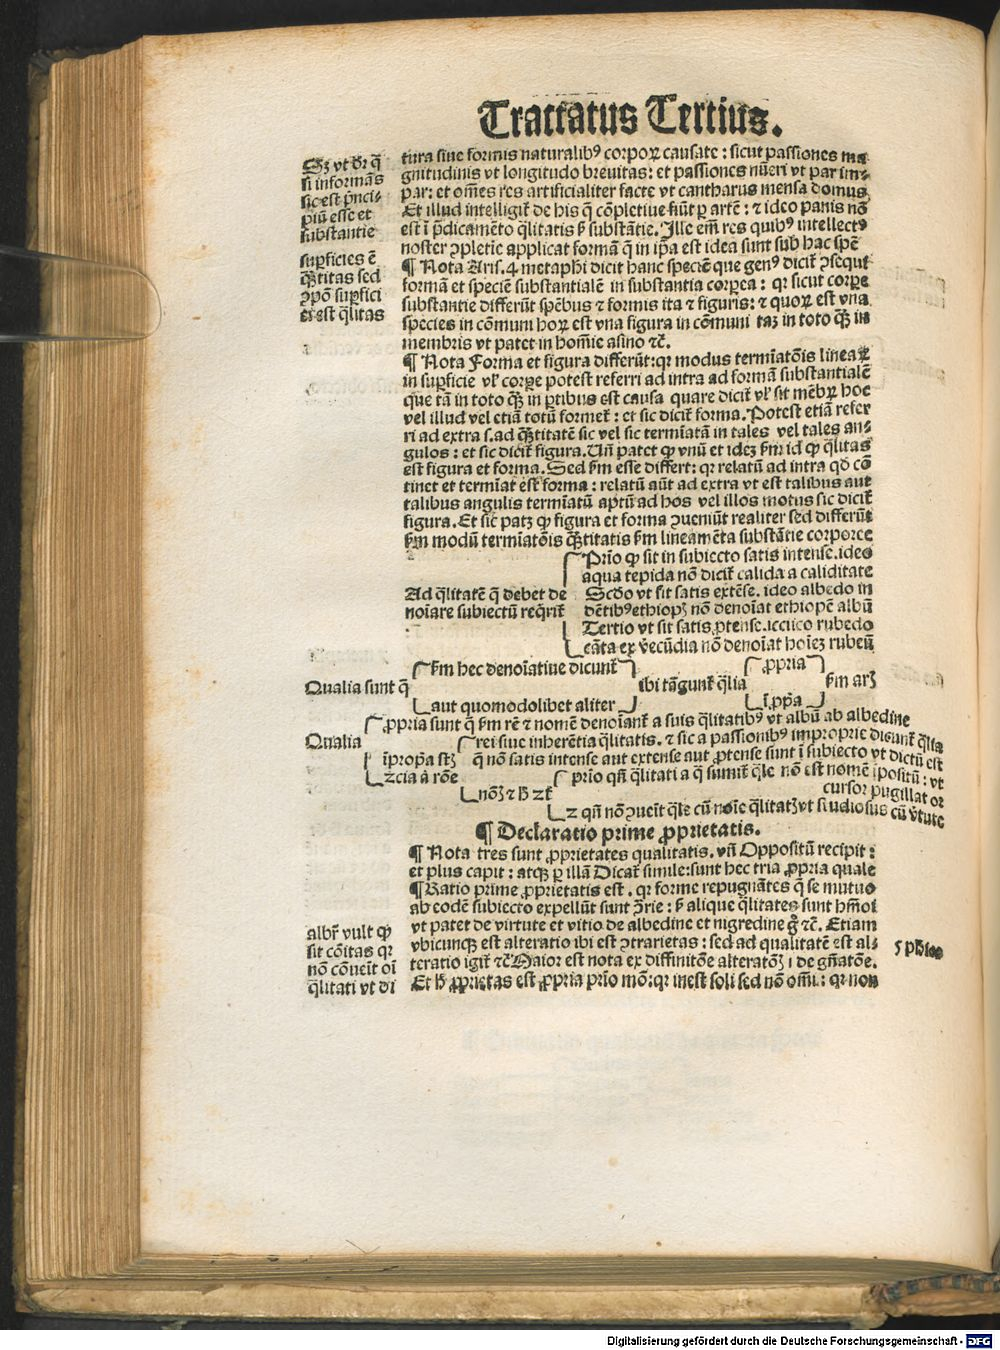 Tractatus Tertius.
Sꝫ vt dr̄ q̄
si informās
sic est p̄nci⸗
piū esse et
substantie
suꝑficies ē
q̄ꝫtitas sed
ꝯpō suꝑfici
ei est q̄litas
tura siue formis naturalibꝰ corpoꝝ causate : sicut passiones ma
gnitudinis vt longitudo breuitas: et passiones nūeri vt par im⸗
par: et om̄es res artificialiter facte vt cantharus mensa domus
Et illud intelligit᷑ de his q̄ cōpletiue fiūt ꝑ artē: ⁊ ideo panis nō
est ī p̄dicamēto q̄litatis ß substātie. Ille em̄ res quibꝰ intellectꝰ
noster ꝯpletīe applicat formā q̄ in ip̄a est idea sunt sub hac spē
¶ Nota Aris. 4 metaphi dicit hanc speciē que genꝰ dicit᷑ ꝯsequi
formā et speciē substantialē in substantia corporea : qꝛ sicut corpe
substantie differūt spēbus ⁊ formis ita ⁊ figuris: ⁊ quoꝝ est vna
species in cōmuni hoꝝ est vna figura in cōmuni taꝫ in toto q̄ꝫ in
membris vt patet in homīe asino ⁊c̄.
¶ Nota Forma et figura differūt: qꝛ modus termīatōis lineaꝝ
in suꝑficie vl' corpe potest referri ad intra ad formā substantialē
que tā in toto q̄ꝫ in ꝑtibus est causa quare dicit᷑ vl' sit mēbꝝ hoc
vel illud vel etiā totū format᷑ : et sic dicit᷑ forma. Potest etiā refer
ri ad extra s. ad q̄ꝫtitatē sic vel sic termīatā in tales vel tales an⸗
gulos : et sic dicit᷑ figura. Uñ patet ꝙ vnū et ideꝫ ẜm id ꝙ q̄litas
est figura et forma. Sed ẜm esse differt: qꝛ relatū ad intra qd̄ cō
tinet et termīat est forma : relatū aūt ad extra vt est talibus aut
talibus angulis termīatū aptū ad hos vel illos motus sic dicit᷑
figura. Et sic patꝫ ꝙ figura et forma ꝯueniūt realiter sed differūt
ẜm modū termīatōis q̄ꝫtitatis ẜm lineamēta substātie corporee
Ad q̄litatē q̄ debet de
noīare subiectū reqrit᷑
Prīo ꝙ sit in subiecto satis intense. ideo
aqua tepida nō dicit᷑ calida a caliditate
Scd̄o vt sit satis extēse. ideo albedo in
dētibꝰ ethiopꝫ nō denoīat ethiopē albū
Tertio vt sit satis ꝓtense. iccirco rubedo
cāta ex verecūdia nō denoīat hoīeꝫ rubeū
Qualia sunt q̄
ẜm hec denoīatiue dicunt᷑
aut quomodolibet aliter
ibi tāgunt᷑ q̄lia
ꝓpria
īꝓpa
ẜm arꝫ
Qualia
ꝓpria sunt q̄ ẜm rē ⁊ nomē denoīant᷑ a suis q̄litatibꝰ vt albū ab albedine
īꝓpria st̄ꝫ
⁊cia a rōe
rei siue inherētia q̄litatis. ⁊ sic a passionibꝰ improprie dicunt᷑ q̄lia
q̄ nō satis intense aut extense aut ꝓtense sunt ī subiecto vt dictū est
nōīꝫ ⁊ ß ⁊t᷑
prīo qn̄ q̄litati a q̄ sumit᷑ q̄le nō est nomē īpositū : vt
cursor pugillator
⁊ qn̄ nō ꝯueit q̄le cū noīe q̄litatꝫ vt studiosus cū v̄tute
¶ Declaratio prime ꝓprietatis.
¶ Nota tres sunt ꝓprietates qualitatis. vñ Oppositū recipit :
et plus capit : atqꝫ ꝑ illā Dicar̄ simile: sunt hec tria ꝓpria quale
¶ Ratio prime ꝓprietatis est . qꝛ forme repugnātes q̄ se mutuo
ab eodē subiecto expellūt sunt ꝯ̄rie : ß alique q̄litates sunt hm̄oi
vt patet de virtute et vitio de albedine et nigredine g̊ ⁊c̄. Etiam
vbicunqꝫ est alteratio ibi est ꝯtrarietas : sed ad qualitatē est al⸗
teratio igit᷑ ⁊c̄ Maior est nota ex diffinitōe alteratōꝫ ī de gn̄atōe.
Et ß ꝓprietas est ꝓpria prīo mō: qꝛ inest soli sed nō om̄i : qꝛ non
albr̄ vult ꝙ
sit cōitas qꝛ
nō cōueit oī
q̄litati vt di
Digitalisierung gefördert durch die Deutsche Forschungsgemeinschaft - DFG